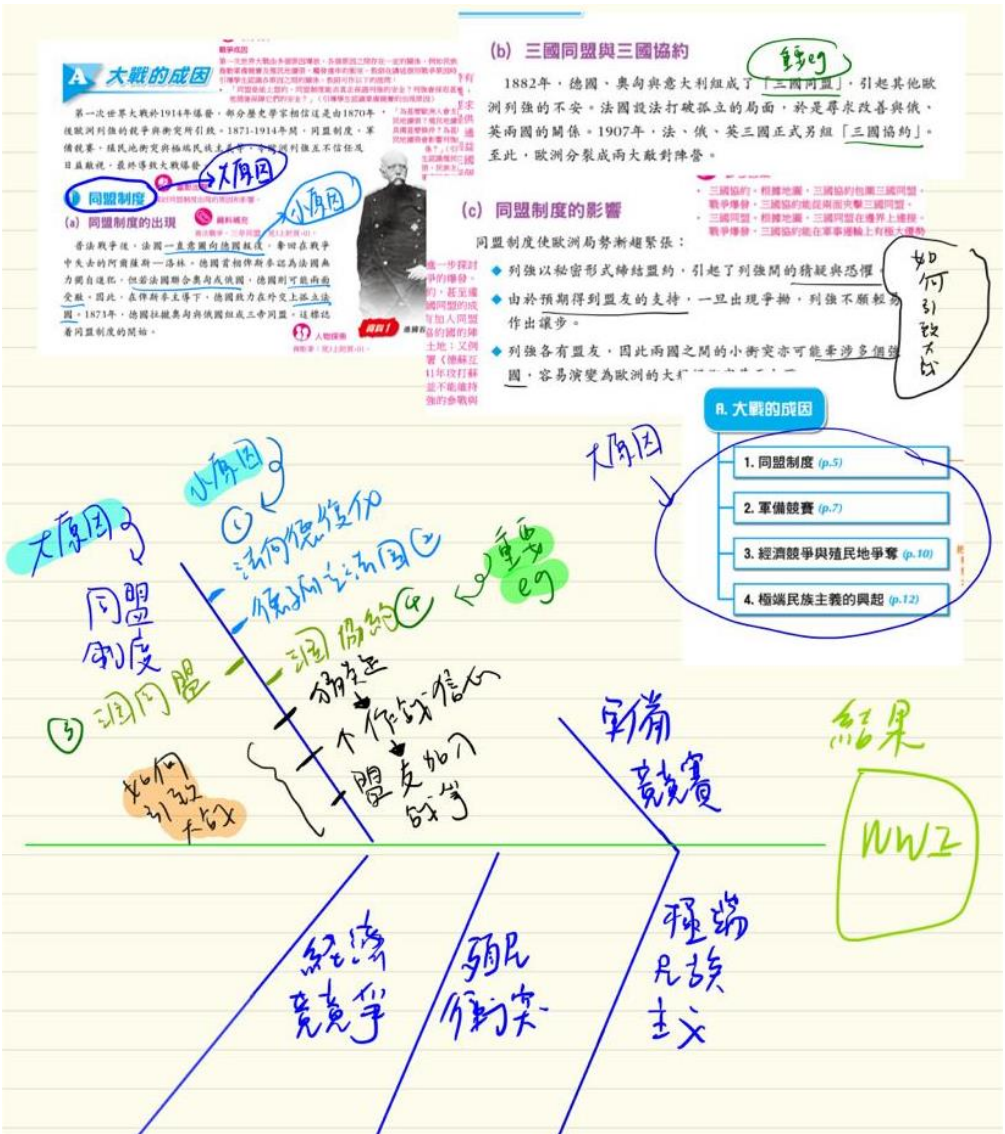 A 大戰的成因
第一次世界大戰於1914年爆發，部分歷史學家相信這是由1870年
後歐洲列強的競爭與衝突所引致。1871-1914年間，同盟制度、軍
備競賽、殖民地衝突與極端民族主義
日益敵視，最終導致大戰爆發
大原因
同盟制度
小原因
(a) 同盟制度的出現
資料補充
普法戰爭後，法國一直意圖向德國報復，奪回在戰爭
中失去的阿爾薩斯－洛林。德國首相俾斯麥認為法國無
力獨自進犯，但若法國聯合奧匈或俄國，德國則可能兩面
受敵。因此，在俾斯麥主導下，德國致力在外交上孤立法
國。1873年，德國拉攏奧匈與俄國組成三帝同盟，這標誌
着同盟制度的開始。
人物探索
(b) 三國同盟與三國協約
重要eg
1882年，德國、奧匈與意大利組成了「三國同盟」，引起其他歐
洲列強的不安。法國設法打破孤立的局面，於是尋求改善與俄、
英兩國的關係。1907年，法、俄、英三國正式另組「三國協約」。
至此，歐洲分裂成兩大敵對陣營。
三國協約，根據地圖，三國協約包圍三國同盟，
戰爭爆發，三國協約能從兩面夾擊三國同盟。
三國同盟，根據地圖，三國同盟在邊界上連接，
(c) 同盟制度的影響
同盟制度使歐洲局勢漸趨緊張：
列強以秘密形式締結盟約，引起了列強間的猜疑與恐懼
由於預期得到盟友的支持，一旦出現爭拗，列強不願輕易
作出讓步。
列強各有盟友，因此兩國之間的小衝突亦可能牽涉多個強
國，容易演變為歐洲的大
如何引致大戰
A. 大戰的成因
1. 同盟制度 (p.5)
2. 軍備競賽 (p.7)
3. 經濟競爭與殖民地爭奪 (p.10)
4. 極端民族主義的興起 (p.12)
大原因
小原因
①
法向德復仇
德孤立法國②
大原因
同盟
制度
重要
eg
三國協約④
③ 三國同盟
↑作戰信心
盟友加入
戰爭
如何
引致
大戰
軍備
競賽
結果
WWI
經濟
競爭
殖民
衝突
極端
民族
主义